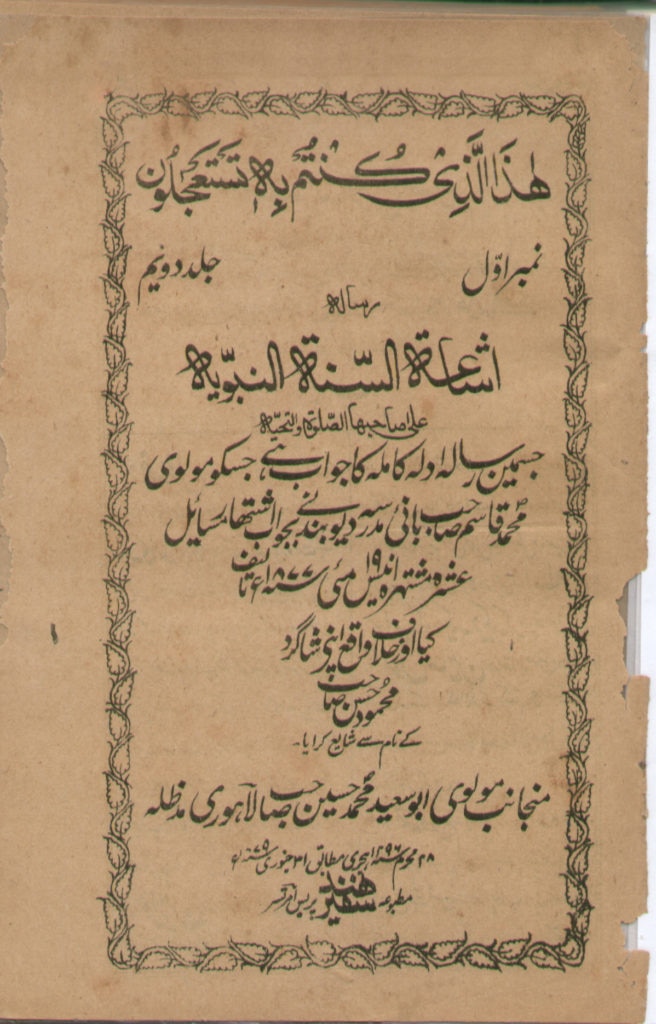 هٰذَا الَّذِیْ کُنْتُمْ بِهٖ تَسْتَعْجِلُوْنَ
نمبر اوّل جلد دویم
رساله
اشاعة السّنة النبویّه
علیٰ صاحبها الصّلوة والتحیّة
جسمین رسالہ ادلہ کاملہ کا جواب ہے جسکو مولوی
محمّد قاسم صاحب بانیٔ مدرسہ دیوبند نے بجواب اشتہار مسائل
عشرہ مشتہرہ انیس ۱۹ مئی سنہ ۱۸۷۷ء تالیف
کیا اور خلاف واقع اپنی شاگرد
محمود حسن صاحب
کے نام سے شایع کرایا۔
منجانب مولوی ابو سعید محمّد حسین صاحب لاہوری مدظلہ
۲۸ محرم سنہ ۱۲۹۶ ہجری مطابق ۳۱ جنوری سنہ ۷۹ء
مطبوعہ سفیر ہند پریس امرتسر